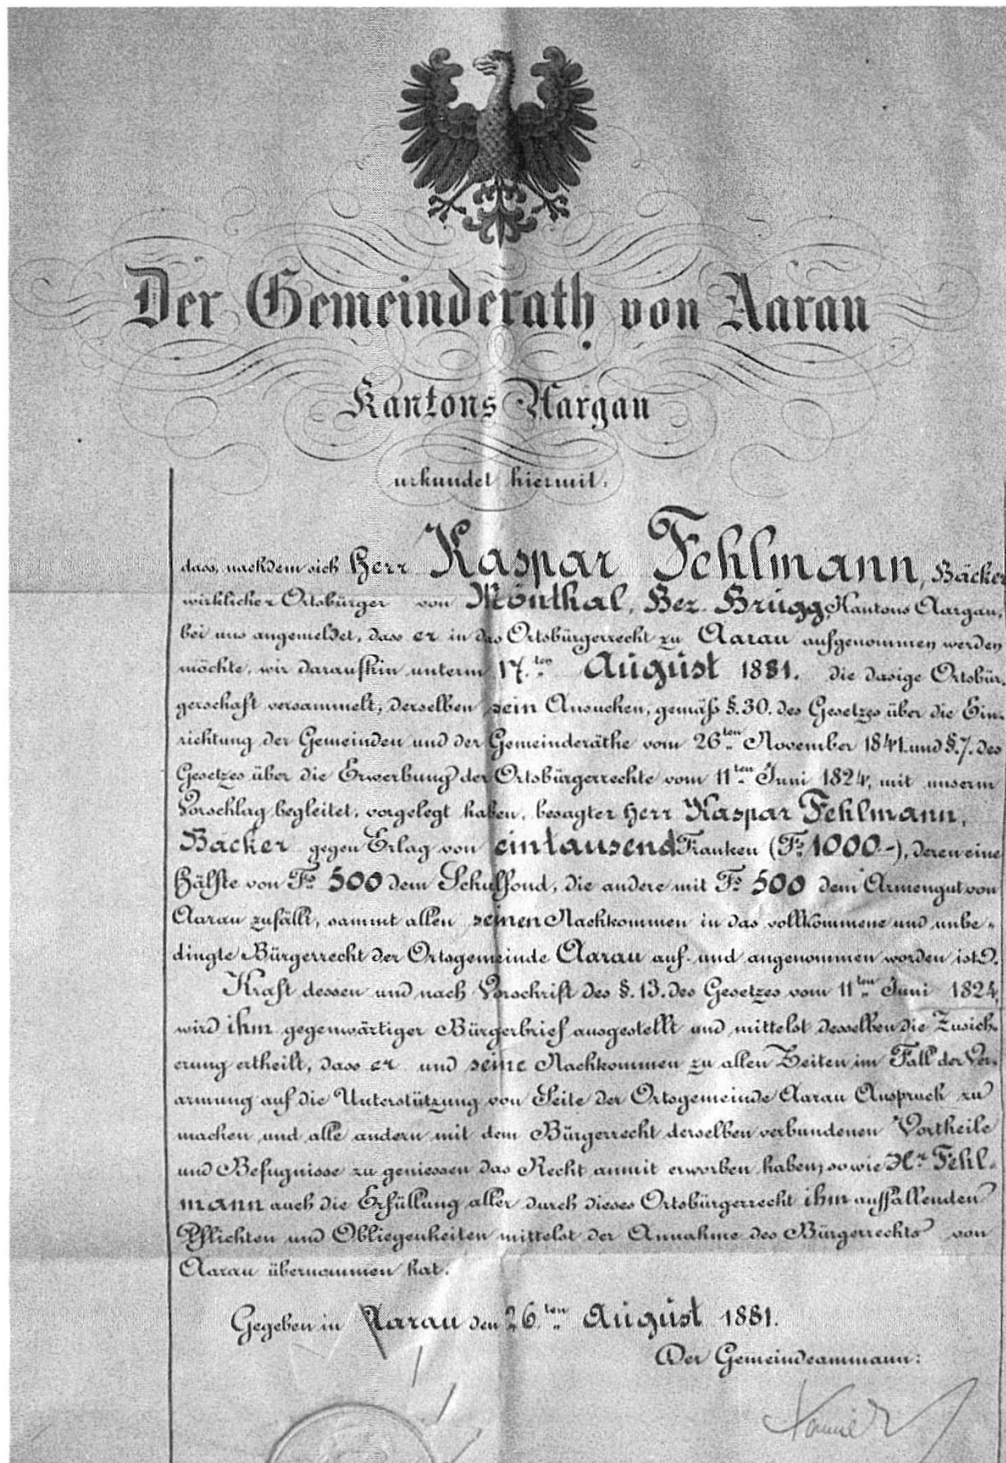 Der Gemeinderath von Aarau
Kantons Aargau
urkundet hiermit,
dass, nachdem sich Herr Kaspar Fehlmann, Bäcker
wirklicher Ortsbürger von Mönthal, Bez. Brugg, Kantons Aargau,
bei uns angemeldet, dass er in das Ortsbürgerrecht zu Aarau aufgenommen werden
möchte, wir daraufhin unterm 17.ten August 1881. die dasige Ortsbür-
gerschaft versammelt, derselben sein Ansuchen, gemäß §.30. des Gesetzes über die Ein-
richtung der Gemeinden und der Gemeinderäthe vom 26ten November 1841. und §.7. des
Gesetzes über die Erwerbung der Ortsbürgerrechte vom 11ten Juni 1824, mit unserm
Vorschlag begleitet, vorgelegt haben, besagter Herr Kaspar Fehlmann,
Bäcker gegen Erlag von eintausend Franken (Fs. 1000-), deren eine
Hälfte von Fs. 500 dem Schulfond, die andere mit Fs. 500 dem Armengut von
Aarau zufällt, sammt allen seinen Nachkommen in das vollkommene und unbe-
dingte Bürgerrecht der Ortsgemeinde Aarau auf- und angenommen worden ist.
Kraft dessen und nach Vorschrift des §.13. des Gesetzes vom 11ten Juni 1824
wird ihm gegenwärtiger Bürgerbrief ausgestellt und mittelst desselben die Zusich-
erung ertheilt, dass er und seine Nachkommen zu allen Zeiten im Fall der Ver-
armung auf die Unterstützung von Seite der Ortsgemeinde Aarau Anspruch zu
machen und alle andern mit dem Bürgerrecht derselben verbundenen Vortheile
und Befugnisse zu geniessen das Recht anmit erworben haben; so wie Hr. Fehl-
mann auch die Erfüllung aller durch dieses Ortsbürgerrecht ihm auffallenden
Pflichten und Obliegenheiten mittelst der Annahme des Bürgerrechts von
Aarau übernommen hat.
Gegeben in Aarau den 26.ten August 1881.
Der Gemeindeammann: